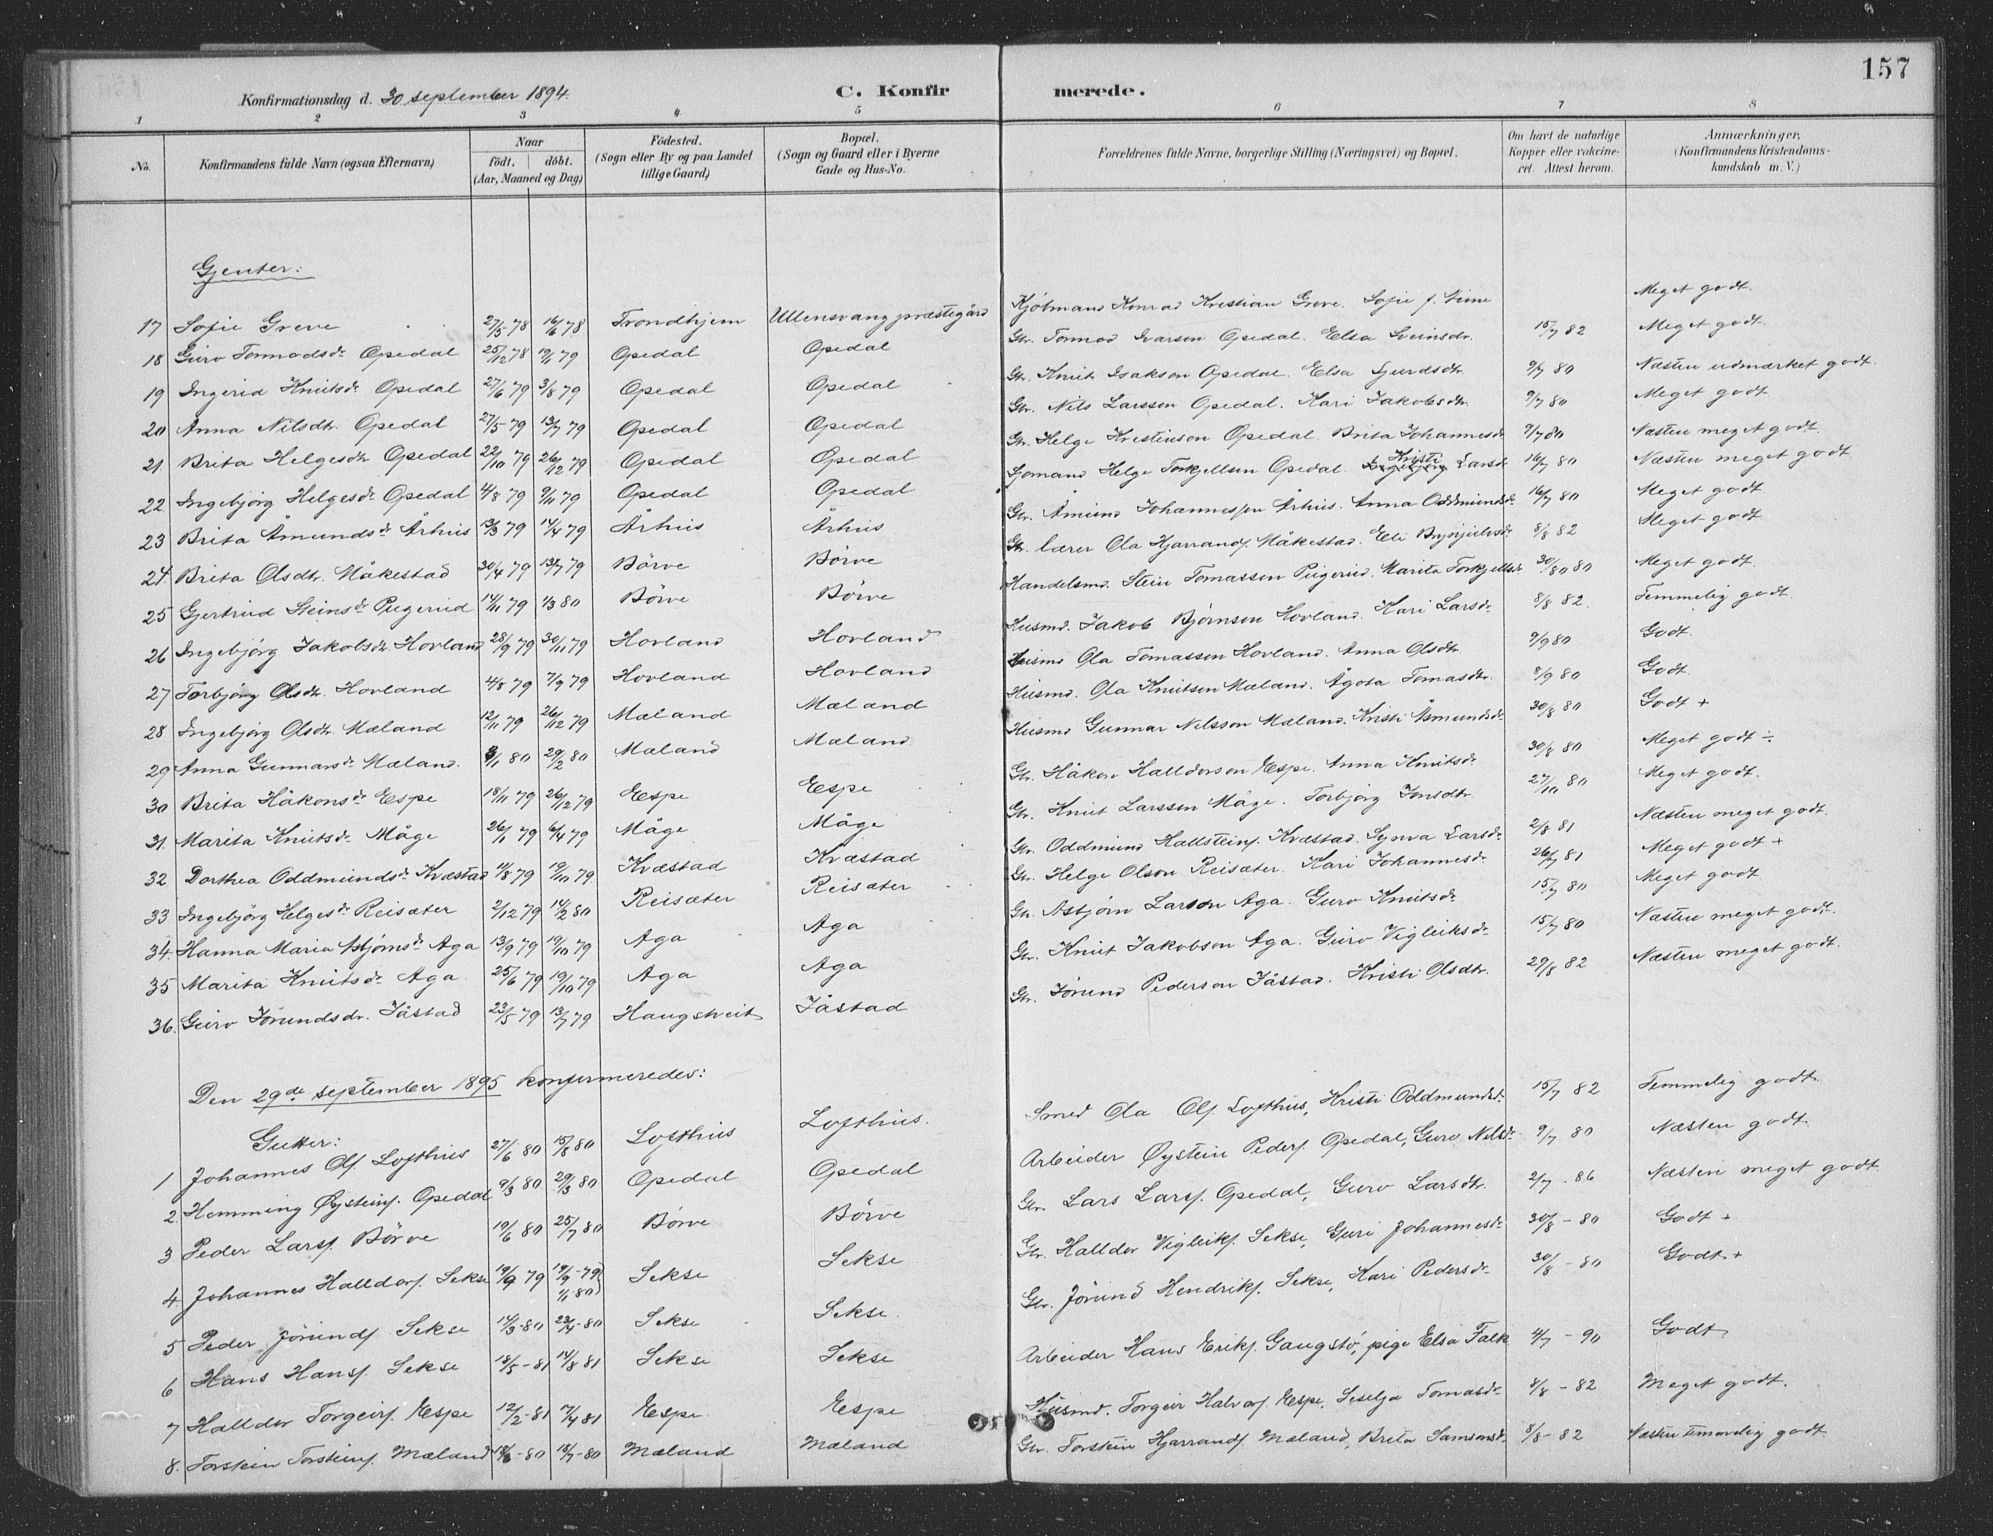 157
Konfirmationsdag d. 30 september 1894.
C. Konfirmerede.
1 2 3 4 5 6 7 8
No. Konfirmandens fulde Navn (ogsaa Efternavn) Naar födt. döbt. (Aar, Maaned og Dag) Födested. (Sogn eller By og paa Landet tillige Gaard) Bopæl. (Sogn og Gaard eller i Byerne Gade og Hus-No. Forældrenes fulde Navne, borgerlige Stilling (Næringsvei) og Bopæl. Om havt de naturlige Kopper eller vakcineret. Attest herom. Anmærkninger. (Konfirmandens Kristendomskundskab m. V.)
Gjenter:
17 Sofie Greve 27/5 78 16/6 78 Trondhjem Ullensvang præstegård Kjöbmand Konrad Kristian Greve. Sofie f. Meget godt.
18 Guro Tormodsdr Opedal 25/12 78 19/1 79 Opedal Opedal Gbr. Tormod Ivarsen Opedal. Elsa Sveinsdr. 15/7 82 Meget godt.
19 Ingerid Knutsdr Opedal 27/6 79 3/8 79 Opedal Opedal Gbr. Knut Isaksen Opedal. Elsa Sjurdsdtr 9/7 80 Næsten udmærket godt.
20 Anna Nilsdtr. Opedal 27/5 79 13/7 79 Opedal Opedal Gbr. Nils Larssen Opedal. Kari Jakobsdtr. 9/7 80 Meget godt
21 Brita Helgesdtr Opedal 22/10 79 26/12 79 Opedal Opedal Gbr. Helge Kristenson Opedal. Brita Johannesdr 9/7 80 Næsten meget godt.
22 Ingebjörg Helgesdr Opedal 4/8 79 9/11 79 Opedal Opedal Sjömand Helge Torkjellsen Opedal. Kristi Larsdr 16/7 80 Næsten meget godt
23 Brita Åmundsdr Århus 13/3 79 14/4 79 Århus Århus Gbr. Åmund Johannessen Århus. Anna Oddmundsdr 16/7 80 Meget godt
24 Brita Olsdtr. Måkestad 30/4 79 13/7 79 Börve Börve Gbr. lærer Ola Hjarrandf. Måkestad. Eli Brynjulvsdr. 8/8 82 Meget godt
25 Gjertrud Steinsdr Pugerud 14/11 79 1/3 80 Börve Börve Handelsmd. Stein Tomassen Pugerud. Marita Torkjellsdr 30/8 80 Meget godt.
26 Ingebjörg Jakobsdr Hovland 28/9 79 30/11 79 Hovland Hovland Husmd. Jakob Bjørnson Hovland. Kari Larsdr 8/8 82. Temmelig godt.
27 Torbjörg Olsdtr. Hovland 4/8 79 7/9 79 Hovland Hovland Husmd Ola Tomassen Hovland. Anna Olsdtr 9/9 80 Godt.
28 Ingebjörg Olsdtr. Mæland 12/11 79 26/12 79 Mæland Mæland Husmd. Ola Knutson Mæland. Ågota Tomasdtr. 8/9 80 Godt.
29 Anna Gunnarsdr Mæland. 3/1 80 29/2 80 Mæland Mæland Husmd Gunnar Nilsson Mæland. Kristi Åsmundsdr 30/8 80 Godt +
30 Brita Håkonsdr Espe 18/11 79 26/12 79 Espe Espe Gbr. Håkon Halldorson Espe. Anna Knutsdr 30/8 80 Meget godt ÷
31. Marita Knutsdr Måge 26/1 79 6/4 79 Måge Måge Gbr. Knut Larssen Måge. Torbjörg Jonsdtr 27/10 80 Meget godt.
32 Dorthea Oddmundsdr Kvæstad 11/8 79 19/10 79 Kvæstad Kvæstad Gbr. Oddmund Hallsteinf. Kvæstad. Synva Larsdr 2/8 81 Næsten meget godt.
33 Ingebjörg Helgesdr Reisæter 2/12 79 14/2 80 Reisæter Reisæter Gbr. Helge Olson Reisæter. Kari Johannesdr 26/7 81 Meget godt +
34 Hanna Maria Asbjørnsdr Aga 13/9 79 19/10 79 Aga Aga Gbr. Asbjørn Larson Aga. Guro Knutsdr 15/7 80 Meget godt
35 Marita Knutsdr Aga. 25/6 79 19/10 79 Aga Aga Gbr. Knut Jakobson Aga. Guro Vigleiksdr 15/7 80 Næsten meget godt.
36. Guro Jörundsdr. Jåstad 23/5 79 13/7 79 Haugstveit Jåstad Gbr. Jörund Pederson Jåstad. Kristi Olsdtr. 29/8 82 Næsten meget godt.
Den 29de september 1895 konfirmeredes:
Gutter:
1 Johannes Olf Lofthus 27/6 80 15/8 80 Lofthus Lofthus. Smed Ola Olf Lofthus, Kristi Oddmundsdr 15/7 82 Temmelig godt
2 Hemming Øysteinf. Opedal 9/3 80 29/3 80 Opedal Opedal Arbeider Øystein Pederf. Opedal, Guro Nilsdr 9/7 80 Næsten godt.
3 Peder Larsf Börve 19/6 80 25/7 80 Börve Börve Gbr. Lars Larsf. Opedal, Guro Larsdtr 2/7 - 86 Næsten meget godt
4 Johannes Halldorf. Sekse 19/9 79 Sekse Sekse Gbr. Halldor Vigleikf. Sekse, Guri Johannesdr 30/8 - 80 Godt +
5 Peder Jörundf Sekse 14/3-80 23/4-80 Sekse Sekse. Gbr. Jörund Hendrikf. Sekse, Kari Pedersdr 30/8 - 80 Godt +
6 Hans Hansf. Sekse 18/5-81 14/8 81 Sekse Sekse Arbeider Hans Erikf. Gangstø, pige Elsa Falk 4/7 - 90 Godt
7 Halldor Torgeirf. Espe 12/2-81 17/4 81 Espe Espe Husmd. Torgeir Halvorf Espe. Seselja Tomasdr 8/8 - 82 Meget godt.
8. Torstein Torsteinf. Mæland 80 18/7-80 Mæland Mæland Gbr. Torstein Hjarrandf. Mæland, Brita Samsonsdr. 8/8 - 82 Næsten godt